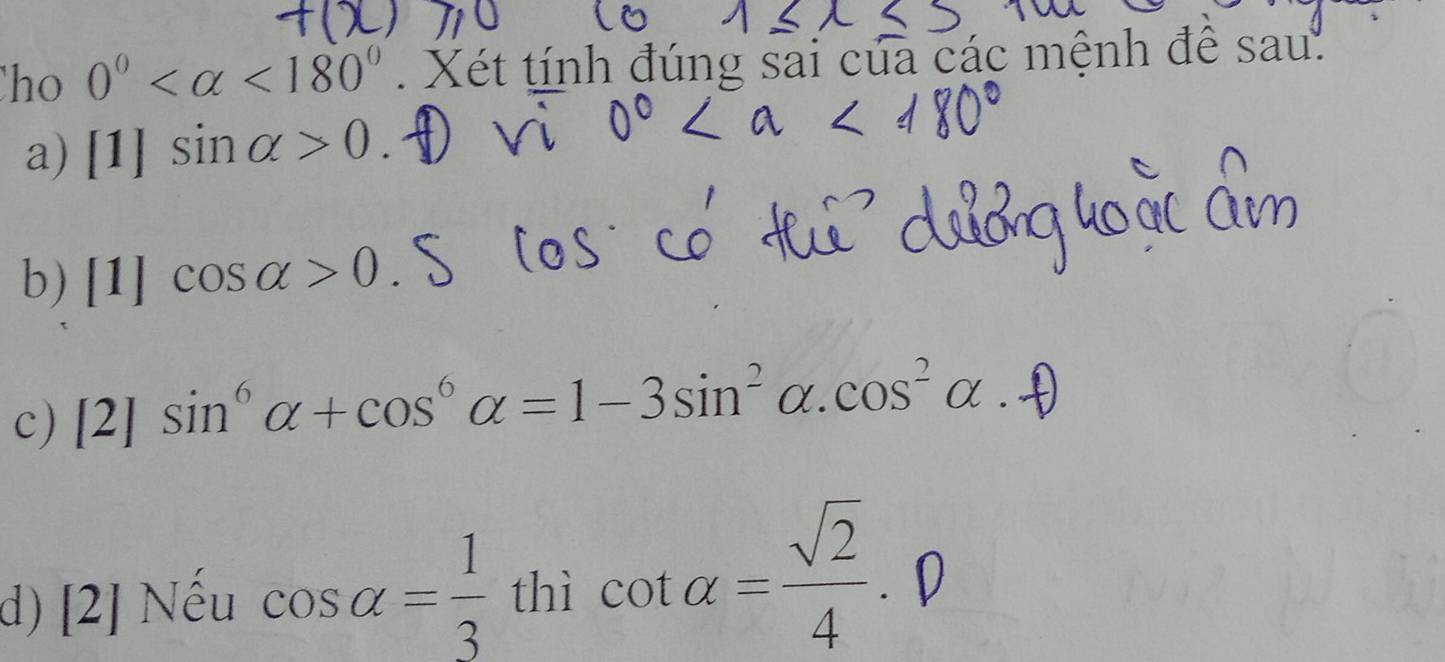 f(x) ⩾ 0 có 1 ≤ x ≤ 5
Cho 0⁰ < α < 180⁰. Xét tính đúng sai của các mệnh đề sau:
a) [1] sin α > 0. Đ vì 0⁰ < a < 180⁰
b) [1] cos α > 0. S cos có thể dương hoặc âm
c) [2] sin⁶ α + cos⁶ α = 1 − 3 sin² α. cos² α. Đ
d) [2] Nếu cos α = 1/3 thì cot α = √2/4. Đ